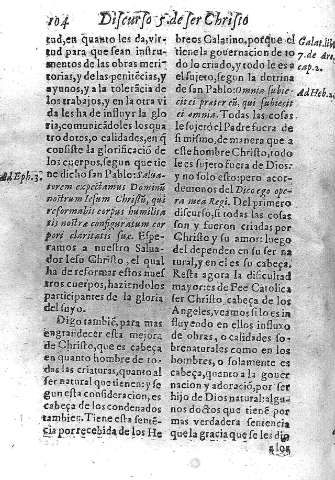 104 Discurso 5. de ser Christo
tud, en quanto les da, vir-
tud para que sean instru-
mentos de las obras meri-
torias, y de las penitēcias, y
ayunos, y a la tolerācia de
los trabajos, y en la otra vi
da les ha de influyr la glo
ria, comunicádoles los qua
tro dotes, o calidades, en q̃
consiste la glorificació de
los cuerpos, segun que tie
ne dicho san Pablo: Salua-
torem expectamus Dominũ
nostrum Iesum Christũ, qui
reformabit corpus humilita
tis nostræ configuratum cor
pori claritatis suæ. Espe-
ramos a nuestro Salua-
dor Iesu Christo, el qual
ha de reformar estos nues
tros cuerpos, haziendoles
participantes de la gloria
del suyo.
Digo tambiē, para mas
engrandecer esta mejora
de Christo, que es cabeça
en quanto hombre de to-
das las criaturas, quanto al
ser natural que tienen: y se
gun esta consideracion, es
cabeça de los condenados
tambien. Tiene esta sentē-
cia por recebida de los He
Ad Eph. 3.
breos Galatino, porque el
tiene la gouernacion de to
do lo criado, y todo le es su
jeto, segun la dotrina
de san Pablo: Omnia subie-
cit præter eũ, qui subiecit
ei omnia. Todas las cosas
le sujetó el Padre fuera de
si mismo, de manera que a
este hombre Christo, todo
le es sujeto fuera de Dios:
y no solo esto: pero acor-
demonos del Dico ego ope-
ra mea Regi. Del primero
discurso, si todas las cosas
son y fueron criadas por
Christo y su amor: luego
del dependen en su ser na
tural, y en el es su cabeça.
Resta agora la dificultad
mayor: es de Fee Catolica
ser Christo cabeça de los
Angeles, veamos si lo es in
fluyendo en ellos influxo
de obras, o calidades so-
brenaturales como en los
hombres, o solamente es
cabeça, quanto a la gouer
nacion y adoració, por ser
hijo de Dios natural: algu-
nos doctos que tienē por
mas verdadera sentencia
que la gracia que se les dio
Galat. li
7. de Arc.
cap. 2.
Ad Heb. 2.